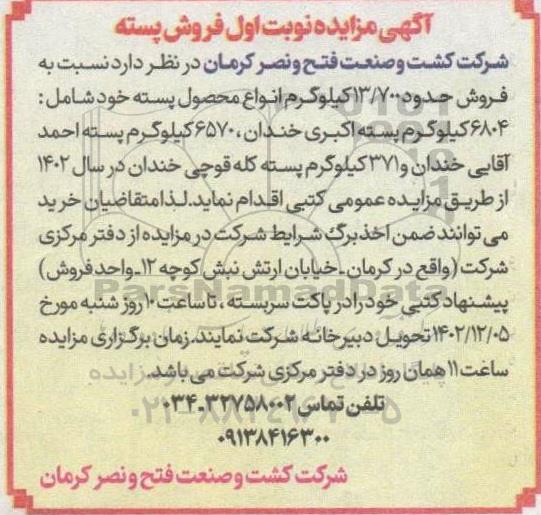 آگهی مزایده نوبت اول فروش پسته
شرکت کشت و صنعت فتح و نصر کرمان در نظر دارد نسبت به
فروش حدود ۱۳/۷۰۰ کیلوگرم انواع محصول پسته خود شامل :
۶۸۰۴ کیلوگرم پسته اکبری خندان ، ۶۵۷۰ کیلوگرم پسته احمد
آقایی خندان و ۳۷۱ کیلوگرم پسته کله قوچی خندان در سال ۱۴۰۲
از طریق مزایده عمومی کتبی اقدام نماید. لذا متقاضیان خرید
می توانند ضمن اخذ برگ شرایط شرکت در مزایده از دفتر مرکزی
شرکت (واقع در کرمان - خیابان ارتش نبش کوچه ۱۲ - واحد فروش)
پیشنهاد کتبی خود را در پاکت سربسته ، تا ساعت ۱۰ روز شنبه مورخ
۱۴۰۲/۱۲/۰۵ تحویل دبیرخانه شرکت نمایند. زمان برگزاری مزایده
ساعت ۱۱ همان روز در دفتر مرکزی شرکت می باشد.
تلفن تماس ۳۲۷۵۸۰۰۲-۰۳۴
۰۹۱۳۸۴۱۶۳۰۰
شرکت کشت و صنعت فتح و نصر کرمان
ParsNamadData